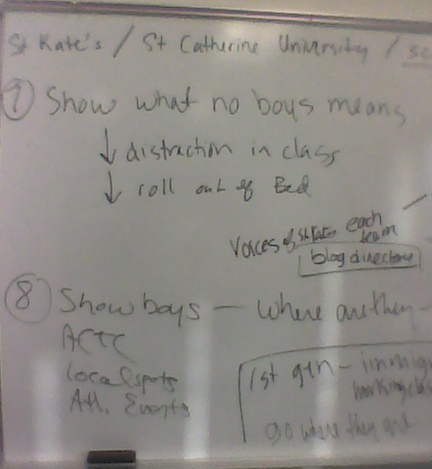 St Kate's / St Catherine University / sc
7 Show what no boys means
↓ distraction in class
↓ roll out of Bed
Voices of St Kates each team
blog directory
8 Show boys - where are they -
ACTC
Local spots
Ath. Events
1st gen - immig
working clas
go where they are